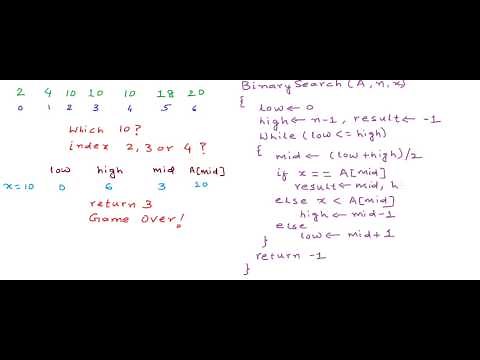 2 4 10 10 10 18 20
0 1 2 3 4 5 6
Which 10?
index 2, 3 or 4 ?
low high mid A[mid]
x=10 0 6 3 20
return 3
Game Over!
BinarySearch(A, n, x)
{
low ← 0
high ← n-1, result ← -1
While (low <= high)
{ mid ← (low+high)/2
if x == A[mid]
result ← mid, h
else x < A[mid]
high ← mid-1
else
low ← mid+1
}
return -1
}